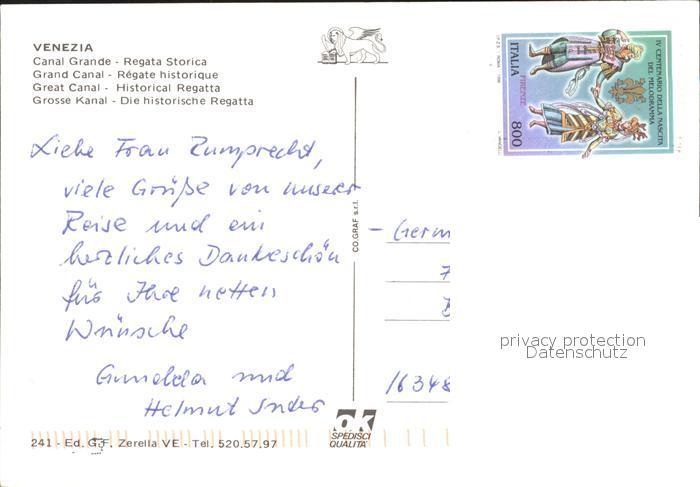 VENEZIA
Canal Grande - Regata Storica
Grand Canal - Régate historique
Great Canal - Historical Regatta
Grosse Kanal - Die historische Regatta
Liebe Frau Rumprecht,
viele Grüße von unserer
Reise und ein
herzliches Dankeschön
für Ihre netten
Wünsche
Gunolda und
Helmut
CO.GRAF s.r.l.
ITALIA
FIRENZE
800
IV CENTENARIO DELLA NASCITA
DEL MELODRAMMA
- Germ
7
16348
privacy protection
Datenschutz
ok
SPEDISCI
QUALITÀ
241 - Ed. G.F. Zerella VE - Tel. 520.57.97